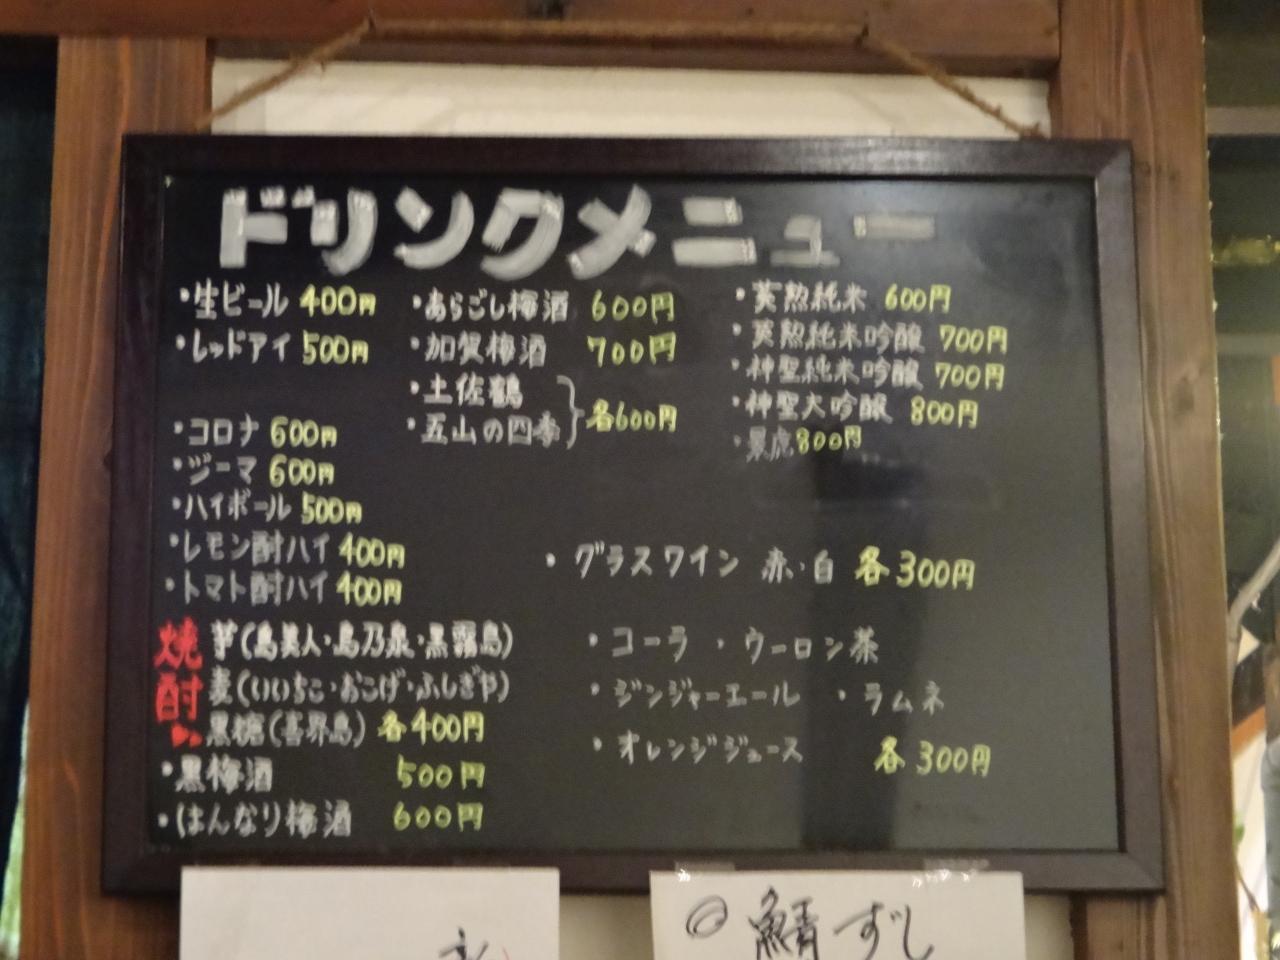 ドリンクメニュー
・生ビール 400円
・レッドアイ 500円
・コロナ 600円
・ジーマ 600円
・ハイボール 500円
・レモン酎ハイ 400円
・トマト酎ハイ 400円
焼酎
芋(島美人・島乃泉・黒霧島)
麦(いいちこ・おこげ・ふしぎや)
黒糖(喜界島) 各400円
・黒梅酒 500円
・はんなり梅酒 600円
・あらごし梅酒 600円
・加賀梅酒 700円
・土佐鶴
・五山の四季
各600円
・英勲純米 600円
・英勲純米吟醸 700円
・神聖純米吟醸 700円
・神聖大吟醸 800円
・景虎 800円
・グラスワイン 赤・白 各300円
・コーラ ・ウーロン茶
・ジンジャーエール ・ラムネ
・オレンジジュース 各300円
鯖ずし